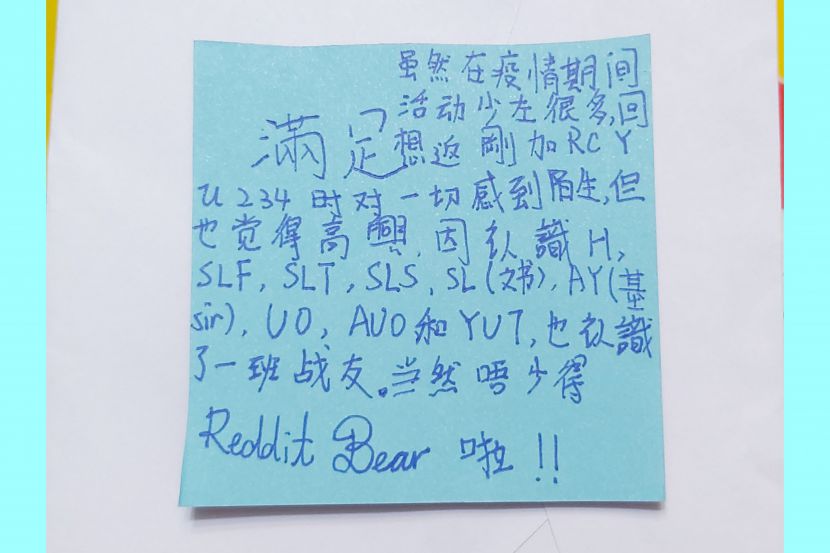 虽然在疫情期间
活动少左很多,回
滿足
想返 剛加RCY
U234时对一切感到陌生,但
也觉得高興,因认識H,
SLF, SLT, SLS, SL(文书), AY(基
sir), UO, AUO和YUT,也认識
了一班战友。当然唔少得
Reddit Bear 啦!!